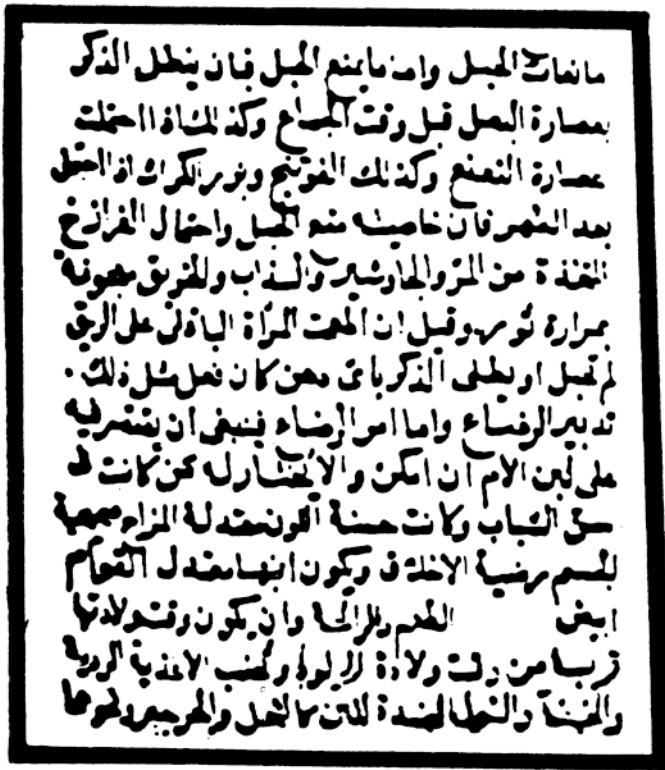 مانعات الحبل واما ما يمنع الحبل فبان يطلى الذكر
بعصارة البصل قبل وقت الجماع وكذلك اذا احتملت
عصارة النعنع وكذلك الفوتنج وبزر الكراث اذا احتمل
بعد الطهر فان خاصيته منع الحبل واحتمال الفرازج
المتخذة من المر والجاوشير والسذاب والخربق معجونة
بمرارة ثور وقيل ان المراة الباقلى على الريق
لم تحبل او يطلى الذكر باى دهن كان فعل مثل ذلك
تدبير الرضاع واما امر الرضاع فينبغى ان يقتصر فيه
على لبن الام ان امكن والا فيختار له من كانت فى
سن الشباب وكانت حسنة اللون معتدلة المزاج صحيحة
الجسم رضية الاخلاق ويكون لبنها معتدل القوام
ابيض الطعم والرائحة وان يكون وقت ولادتها
قريبا من وقت ولادة المولود وتجنب الاغذية الردية
والبقول المفسدة للبن كالبصل والجرجير ونحوهما